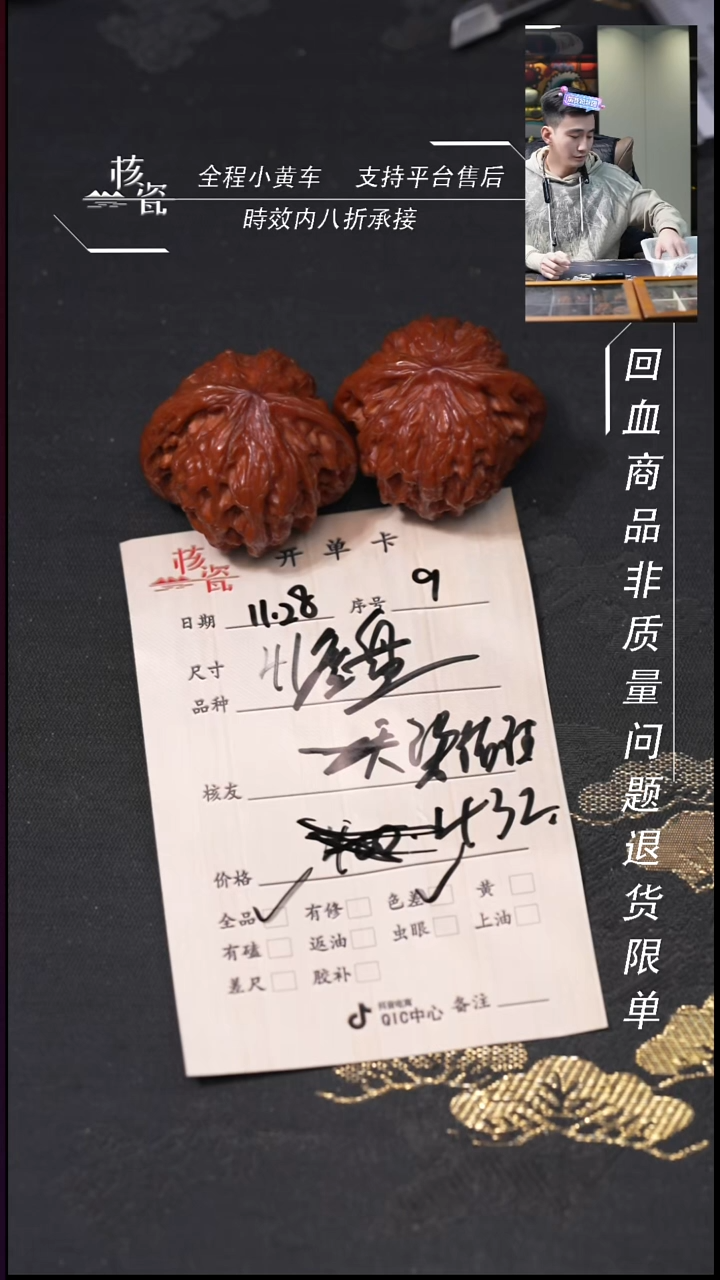 核瓷
全程小黄车 支持平台售后
時效内八折承接
回血商品非质量问题退货限单
核瓷
开单卡
日期 11.28 序号 9
尺寸 41
品种
核友
432.
价格
全品 有修 色差 黄
有磕 返油 虫眼 上油
差尺 胶补
抖音电商
QIC中心 备注